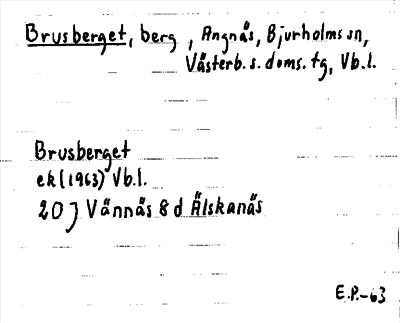 Brusberget, berg, Ångnäs, Bjurholms sn,
Västerb. s. doms. tg, Vb.l.
Brusberget
ek (1963) Vb.l.
20 J Vännäs 8 d Älskanäs
E.P.-63